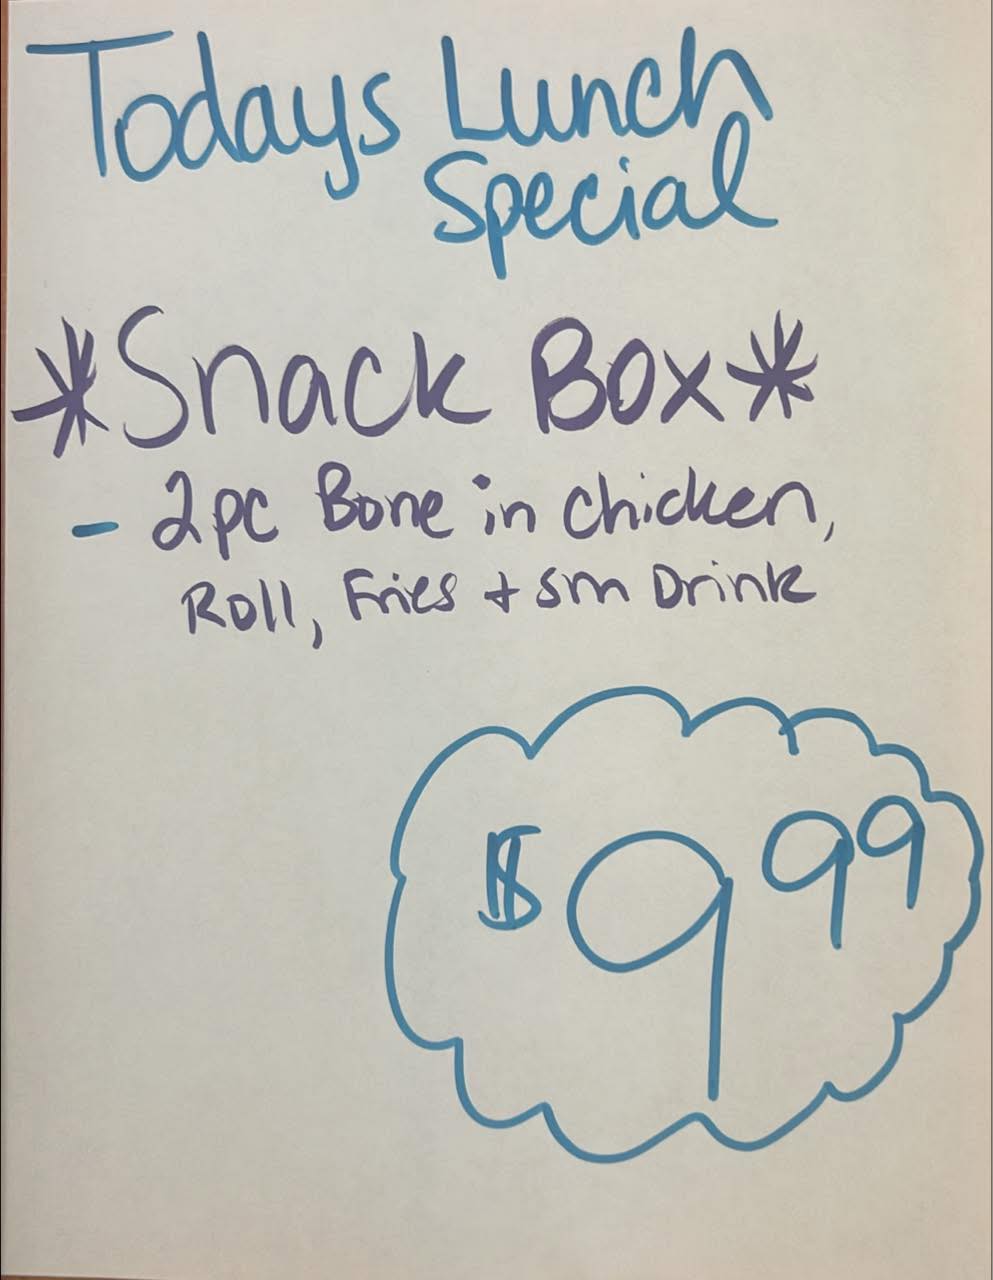 Todays Lunch
Special
*Snack Box*
- 2pc Bone in chicken,
Roll, Fries + sm Drink
$9 99